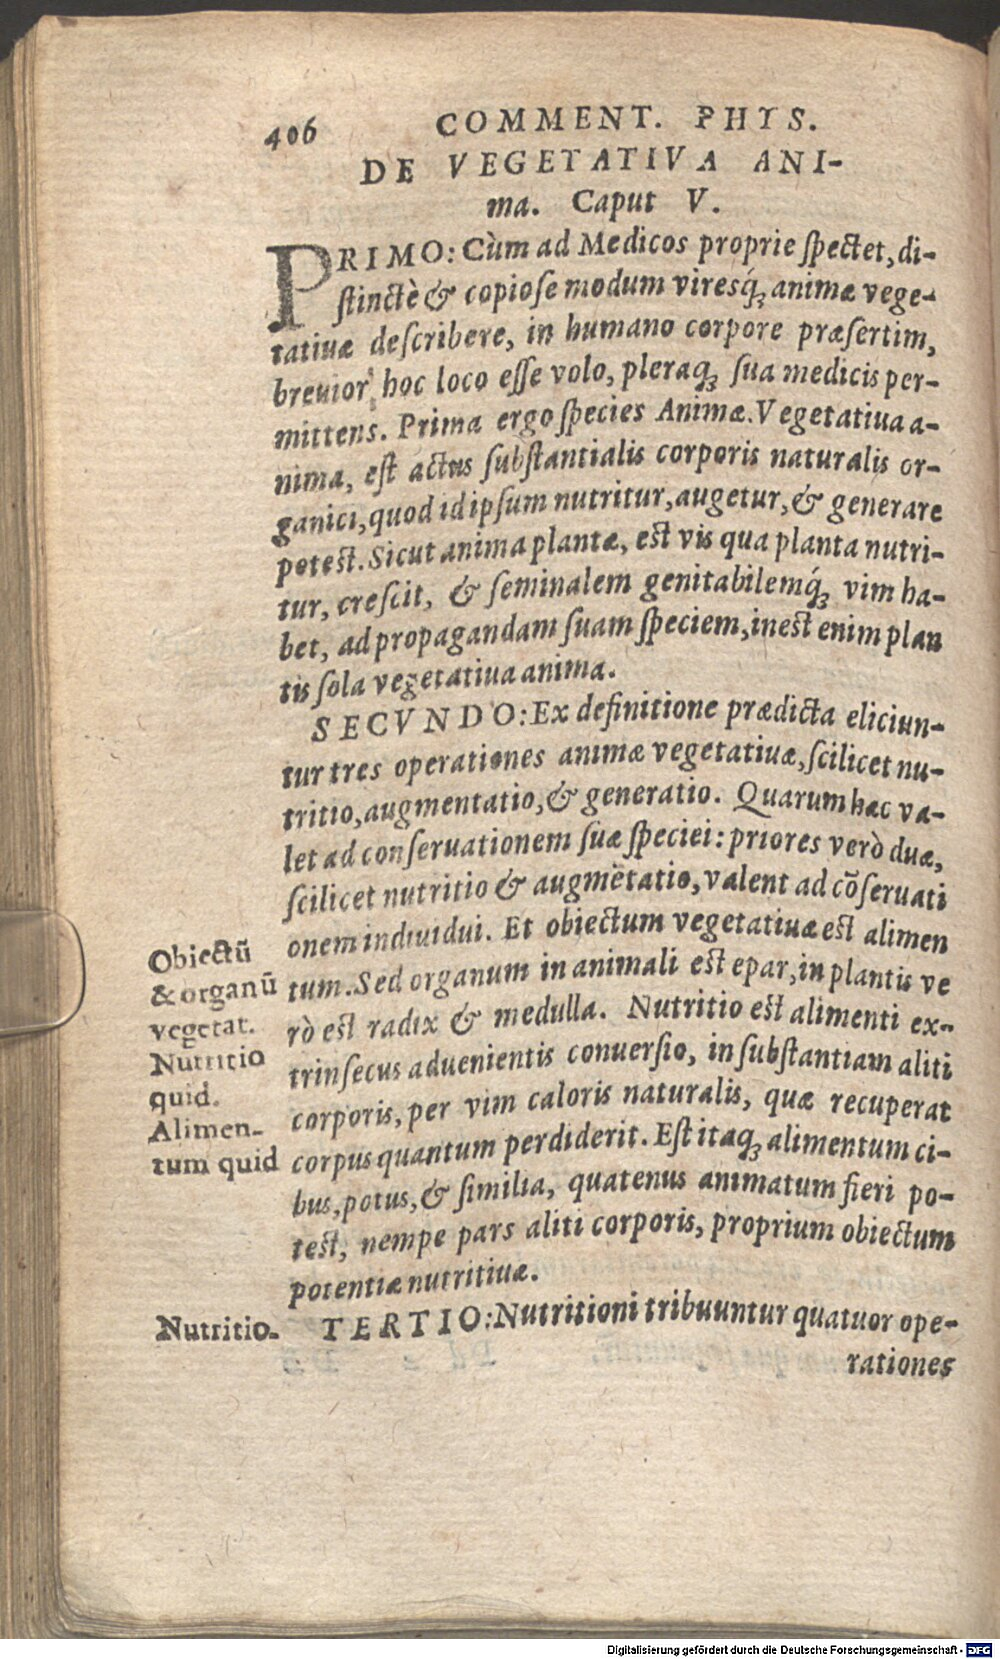 406 COMMENT. PHYS.
DE VEGETATIVA ANI-
ma. Caput V.
PRIMO: Cùm ad Medicos proprie ſpectet, di-
ſtinctè & copioſe modum viresq́; animæ vege-
tatiuæ deſcribere, in humano corpore præſertim,
breuior hoc loco eſſe volo, pleraq; ſua medicis per-
mittens. Prima ergo ſpecies Animæ. Vegetatiua a-
nima, eſt actus ſubſtantialis corporis naturalis or-
ganici, quod id ipſum nutritur, augetur, & generare
poteſt. Sicut anima plantæ, eſt vis qua planta nutri-
tur, creſcit, & ſeminalem genitabilemq́; vim ha-
bet, ad propagandam ſuam ſpeciem, ineſt enim plan
tis ſola vegetatiua anima.
SECVNDO: Ex definitione prædicta eliciun-
tur tres operationes animæ vegetatiuæ, ſcilicet nu-
tritio, augmentatio, & generatio. Quarum hæc va-
let ad conſeruationem ſuæ ſpeciei: priores verò duæ,
ſcilicet nutritio & augmẽtatio, valent ad cõſeruati
onem indiuidui. Et obiectum vegetatiuæ eſt alimen
tum. Sed organum in animali eſt epar, in plantis ve
rò eſt radix & medulla. Nutritio eſt alimenti ex-
trinſecus aduenientis conuerſio, in ſubſtantiam aliti
corporis, per vim caloris naturalis, quæ recuperat
corpus quantum perdiderit. Eſt itaq; alimentum ci-
bus, potus, & ſimilia, quatenus animatum fieri po-
teſt, nempe pars aliti corporis, proprium obiectum
potentiæ nutritiuæ.
TERTIO: Nutritioni tribuuntur quatuor ope-
rationes
Obiectũ
& organũ
vegetat.
Nutritio
quid.
Alimen-
tum quid
Nutritio.
Digitalisierung gefördert durch die Deutsche Forschungsgemeinschaft - DFG